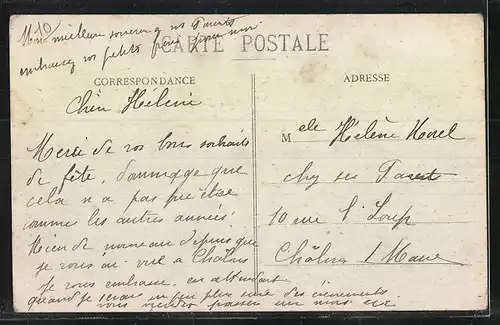 Mon meilleur souvenir à vos Parents
embrassez vos petits frères pour moi.
CARTE POSTALE
CORRESPONDANCE
ADRESSE
Chère Helène
Merci de vos bons souhaits
de fête, dommage que
cela n'a pas pu être
comme les autres années.
Rien de nouveau depuis que
je vous ai vu à Châlons
Je vous embrasse en attendant
quand je serais un peu plus sûre des événements
vous viendrez passer un mois
Melle Hélène Morel
chez ses Parents
10 rue St Loup
Châlons s/ Marne